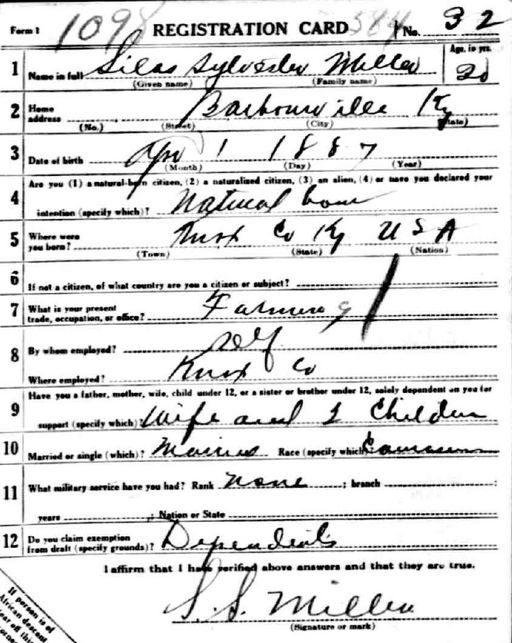 Form 1 1098 REGISTRATION CARD 384 No. 32
Age, in yrs.
1 Name in full Silas Sylvester Miller 30
(Given name) (Family name)
2 Home address Barbourville Ky
(No.) (Street) (City) (State)
3 Date of birth Apr 1 1887
(Month) (Day) (Year)
Are you (1) a natural-born citizen, (2) a naturalized citizen, (3) an alien, (4) or have you declared your
4 intention (specify which)? Natural born
5 Where were you born? Knox Co Ky U S A
(Town) (State) (Nation)
6 If not a citizen, of what country are you a citizen or subject?
7 What is your present trade, occupation, or office? Farming
8 By whom employed? Self
Where employed? Knox Co
Have you a father, mother, wife, child under 12, or a sister or brother under 12, solely dependent on you for
9 support (specify which)? Wife and Children
10 Married or single (which)? Married Race (specify which)? Caucasian
11 What military service have you had? Rank None ; branch
years ; Nation or State
12 Do you claim exemption from draft (specify grounds)? Dependents
I affirm that I have verified above answers and that they are true.
S. S. Miller
(Signature or mark)
If person is of
African descent